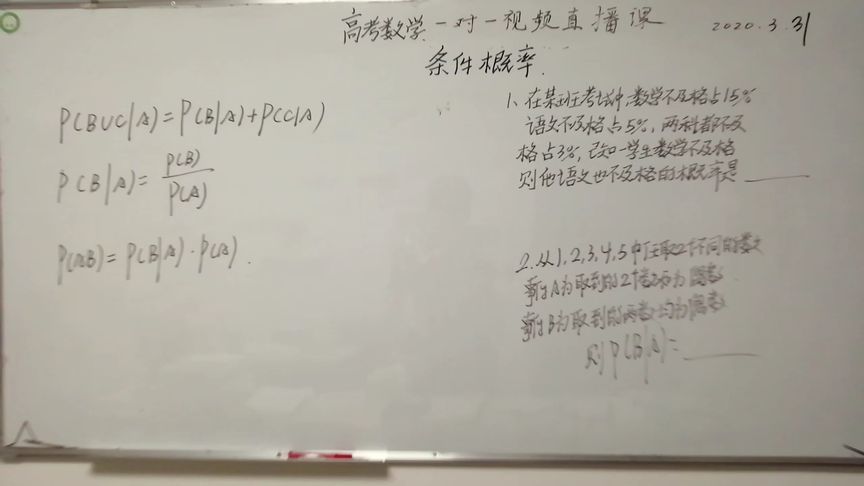 高考数学一对一视频直播课
2020.3.31
条件概率.
P(B∪C|A)=P(B|A)+P(C|A)
P(B|A)=P(B)/P(A)
P(AB)=P(B|A)·P(A).
1、在某班考试中,数学不及格占15%
语文不及格占5%,两科都不及
格占3%,已知一学生数学不及格
则他语文也不及格的概率是______
2.从1,2,3,4,5中任取2个不同的数
事件A为取到的2个数之和为偶数
事件B为取到的两数均为偶数
则P(B|A)=______